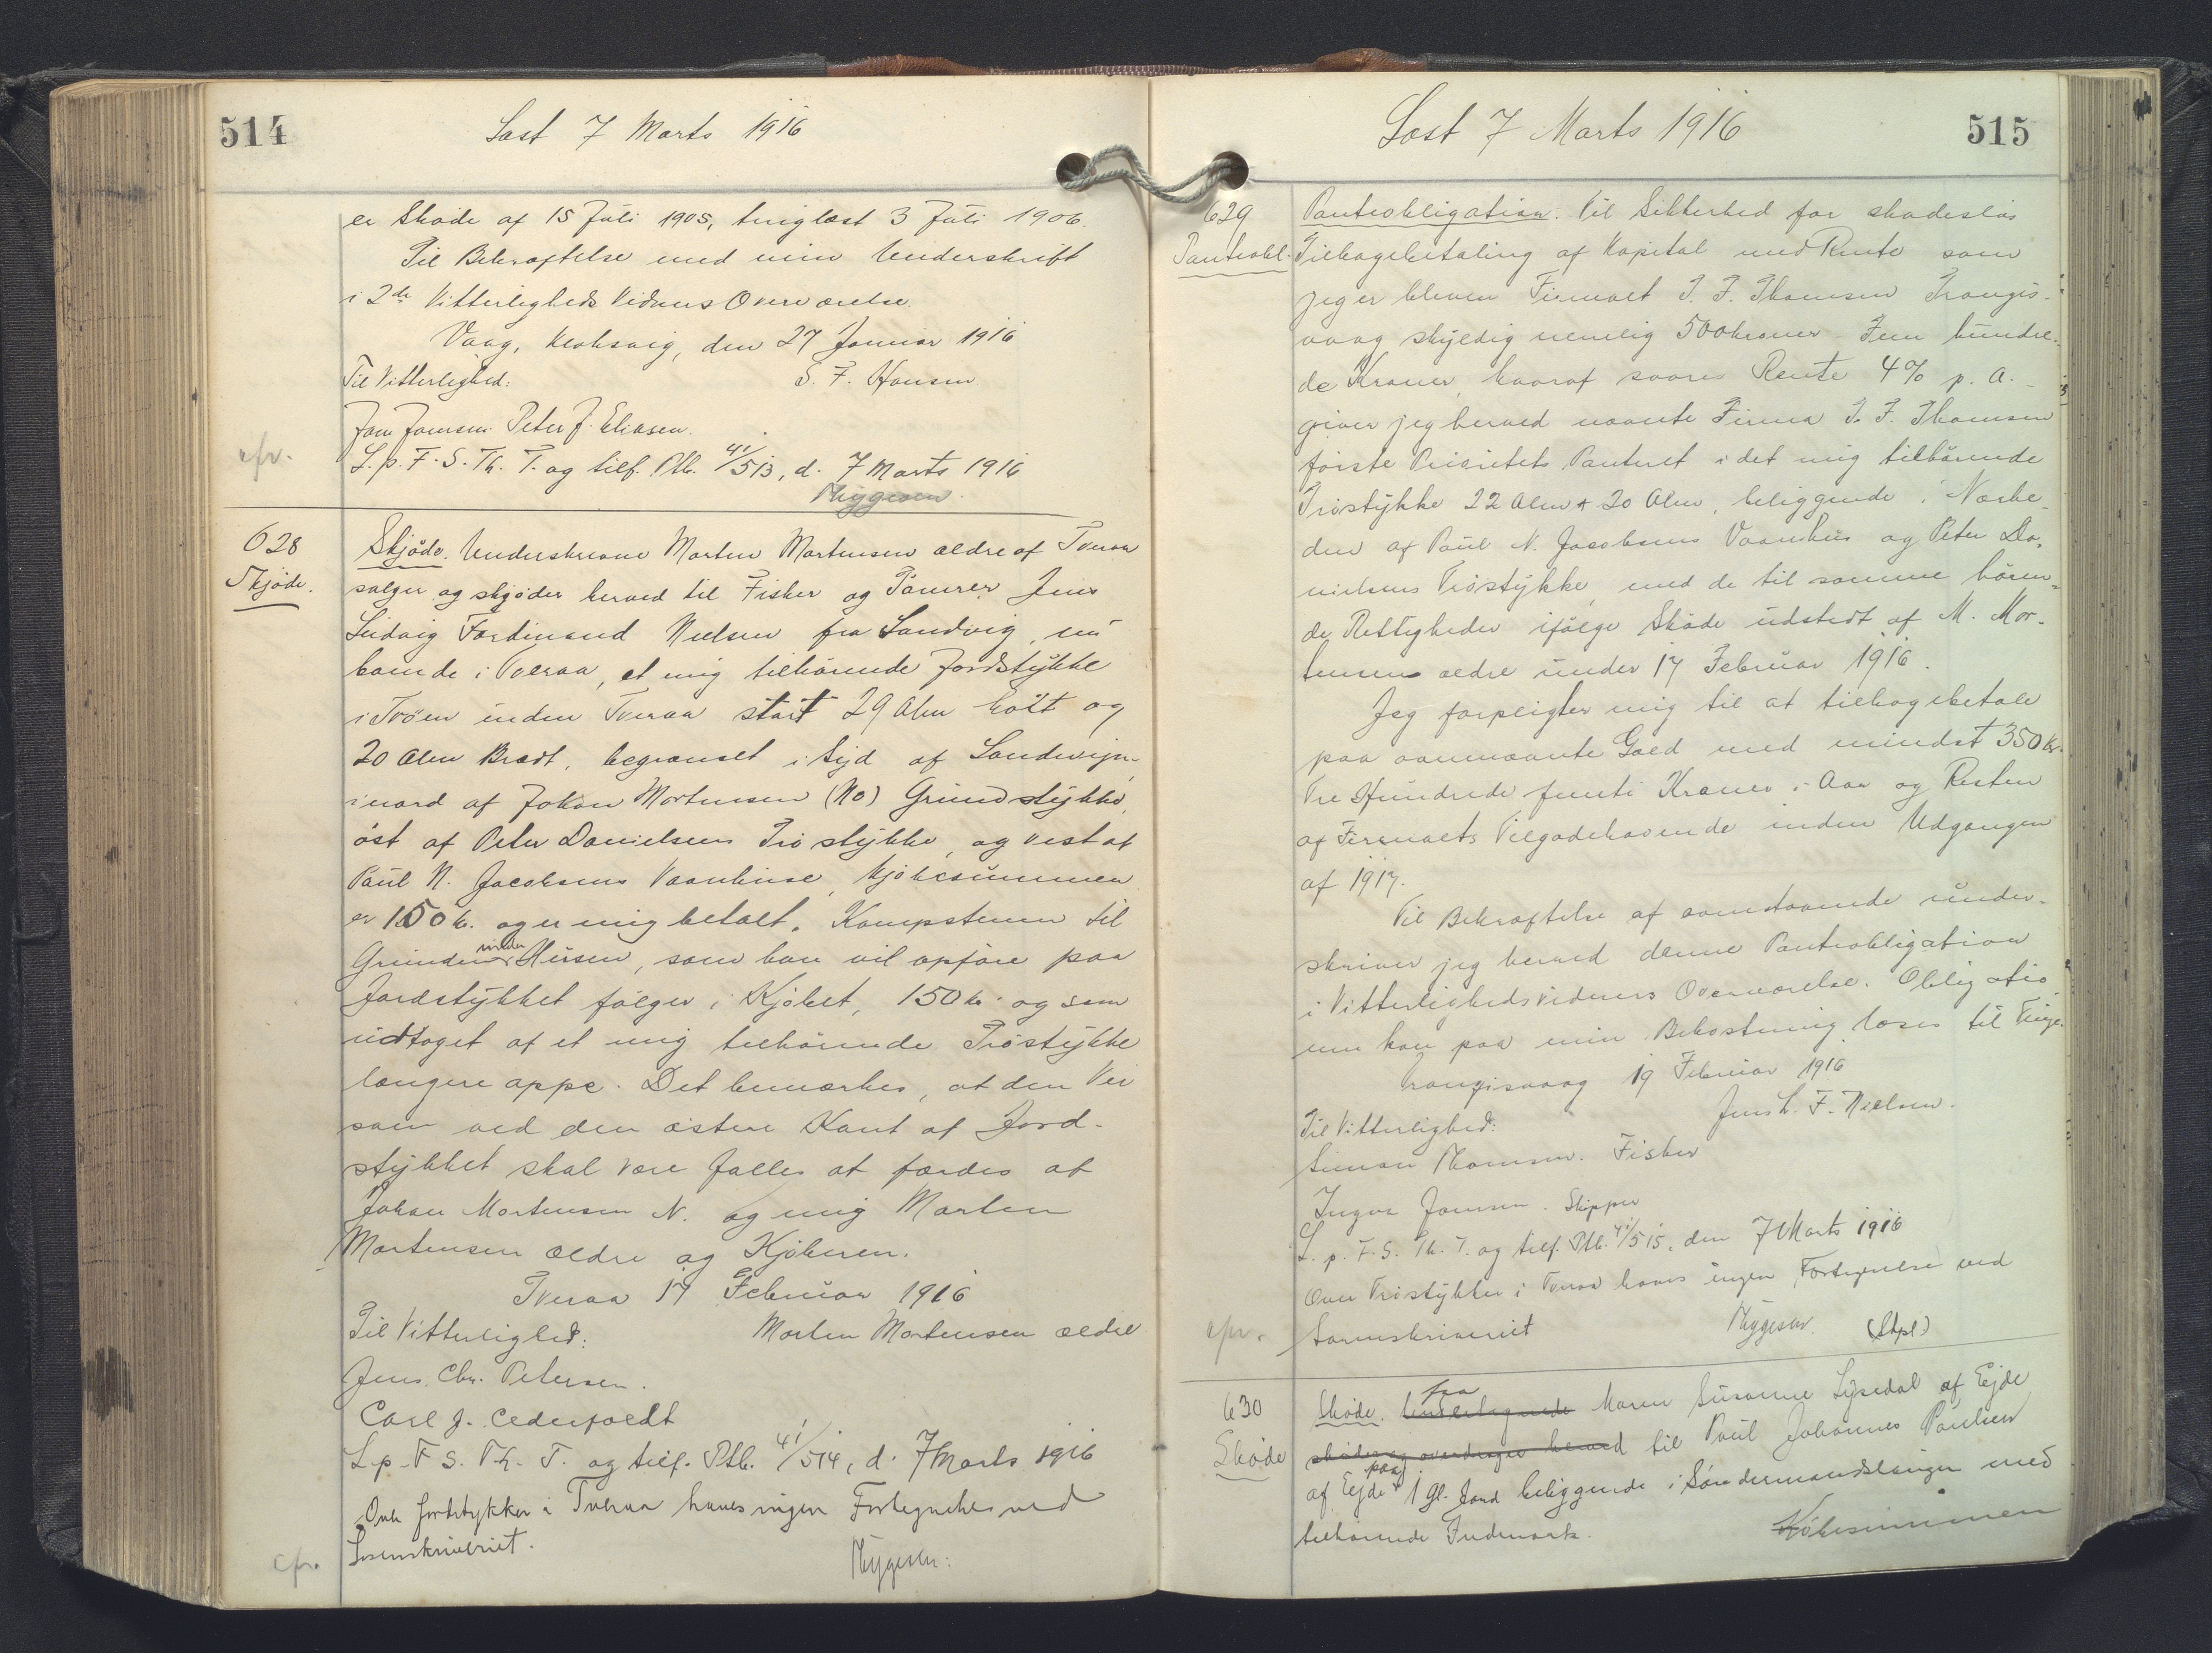 514
Læst 7 Marts 1916
er Skøde af 15 Juli 1905, tinglæst 3 Juli 1906.
Til Bekræftelse med min Underskrift
i 2de Vitterligheds Vidners Overværelse
Vaag, den 27 Januar 1916
Til Vitterlighed:
S. F. Hansen
Joen Joensen Peter J. Eliasen.
L. p. F. S. Th. T. og tilf. Ptb. 41/513, d. 7 Marts 1916
cfr.
Thygesen.
628
Skjøde.
Skjøde. Underskrevne Morten Mortensen ældre af Tveraa
sælger og skjøder herved til Fisker og Tømrer Jens
Ludvig Ferdinand Nielsen fra Sandvig, nu
boende i Tveraa, et mig tilhørende Jordstykke
i Trøen inden Tveraa stort 29 Alen holt og
20 Alen Bredt, begrænset i Syd af
i nord af Johan Mortensen (No) Grundstykke,
øst af Peter Danielsens Trøstykke, og vest af
Paul N. Jacobsens Vaanhuse, Kjøbesummen
er 150 kr. og er mig betalt. Kampstenen til
Grunden under Husen, som han vil opføre paa
Jordstykket følger i Kjøbet, 150 kr. og som
udtaget af et mig tilhørende Trøstykke
længere oppe. Det bemærkes, at den Vei
som ved den østere Kant af Jord-
stykket skal være fælles at færdes af
Johan Mortensen N. og mig Morten
Mortensen ældre og Kjøberen.
Tveraa 17 Februar 1916
Til Vitterlighed:
Morten Mortensen ældre
Jens Chr. Petersen.
Carl J. Cederfoldt
L. p. F. S. Th. T. og tilf. Ptb. 41/514, d. 7 Marts 1916
Over Jordstykker i Tveraa haves ingen Fortegnelse ved
Sorenskriveriet.
cfr.
Thygesen.
Læst 7 Marts 1916
515
629
Panteobl.
Panteobligation. Til Sikkerhed for skadesløs
Tilbagebetaling af Kapital med Rente som
jeg er bleven Firmaet T. F. Thomsen Trangis-
vaag skyldig nemlig 500 kroner Fem hundre-
de Kroner, hvoraf svares Rente 4% p. a. -
giver jeg herved nævnte Firma T. F. Thomsen
første Prioritets Panteret i det mig tilhørende
Trøstykke 22 Alen × 20 Alen, beliggende i Nærhe-
den af Paul N. Jacobsens Vaanhus og Peter Da-
nielsens Trøstykke, med de til samme høren-
de Rettigheder ifølge Skøde udstedt af M. Mor-
tensen ældre under 17 Februar 1916.
Jeg forpligter mig til at tilbagebetale
paa ovennævnte Gæld med mindst 350 kr.
Tre Hundrede femti Kroner i Aar og Resten
af Firmaets Tilgodehavende inden Udgangen
af 1917.
Til Bekræftelse af ovenstaaende under-
skriver jeg herved denne Panteobligation
i Vitterligheds Vidners Overværelse. Obligatio
nen kan paa min Bekostning læses til Tinge.
Trangisvaag 19 Februar 1916
Til Vitterlighed:
Jens L. F. Nielsen.
Simon Thomsen. Fisker
Ingvar Joensen. Skipper
L. p. F. S. Th. T. og tilf. Ptb. 41/515, den 7 Marts 1916
Over Trøstykker i Tveraa haves ingen Fortegnelse ved
cfr.
Sorenskriveriet
Thygesen. (Stpl)
630
Skøde
Skøde. Undertegnede fra Maren Susanne Lysedal af Ejde
skøder og overdrager herved til Poul Johannes Poulsen
af Ejde paa 1 Gl. Jord beliggende i med
tilhørende Indmark. Købesummen